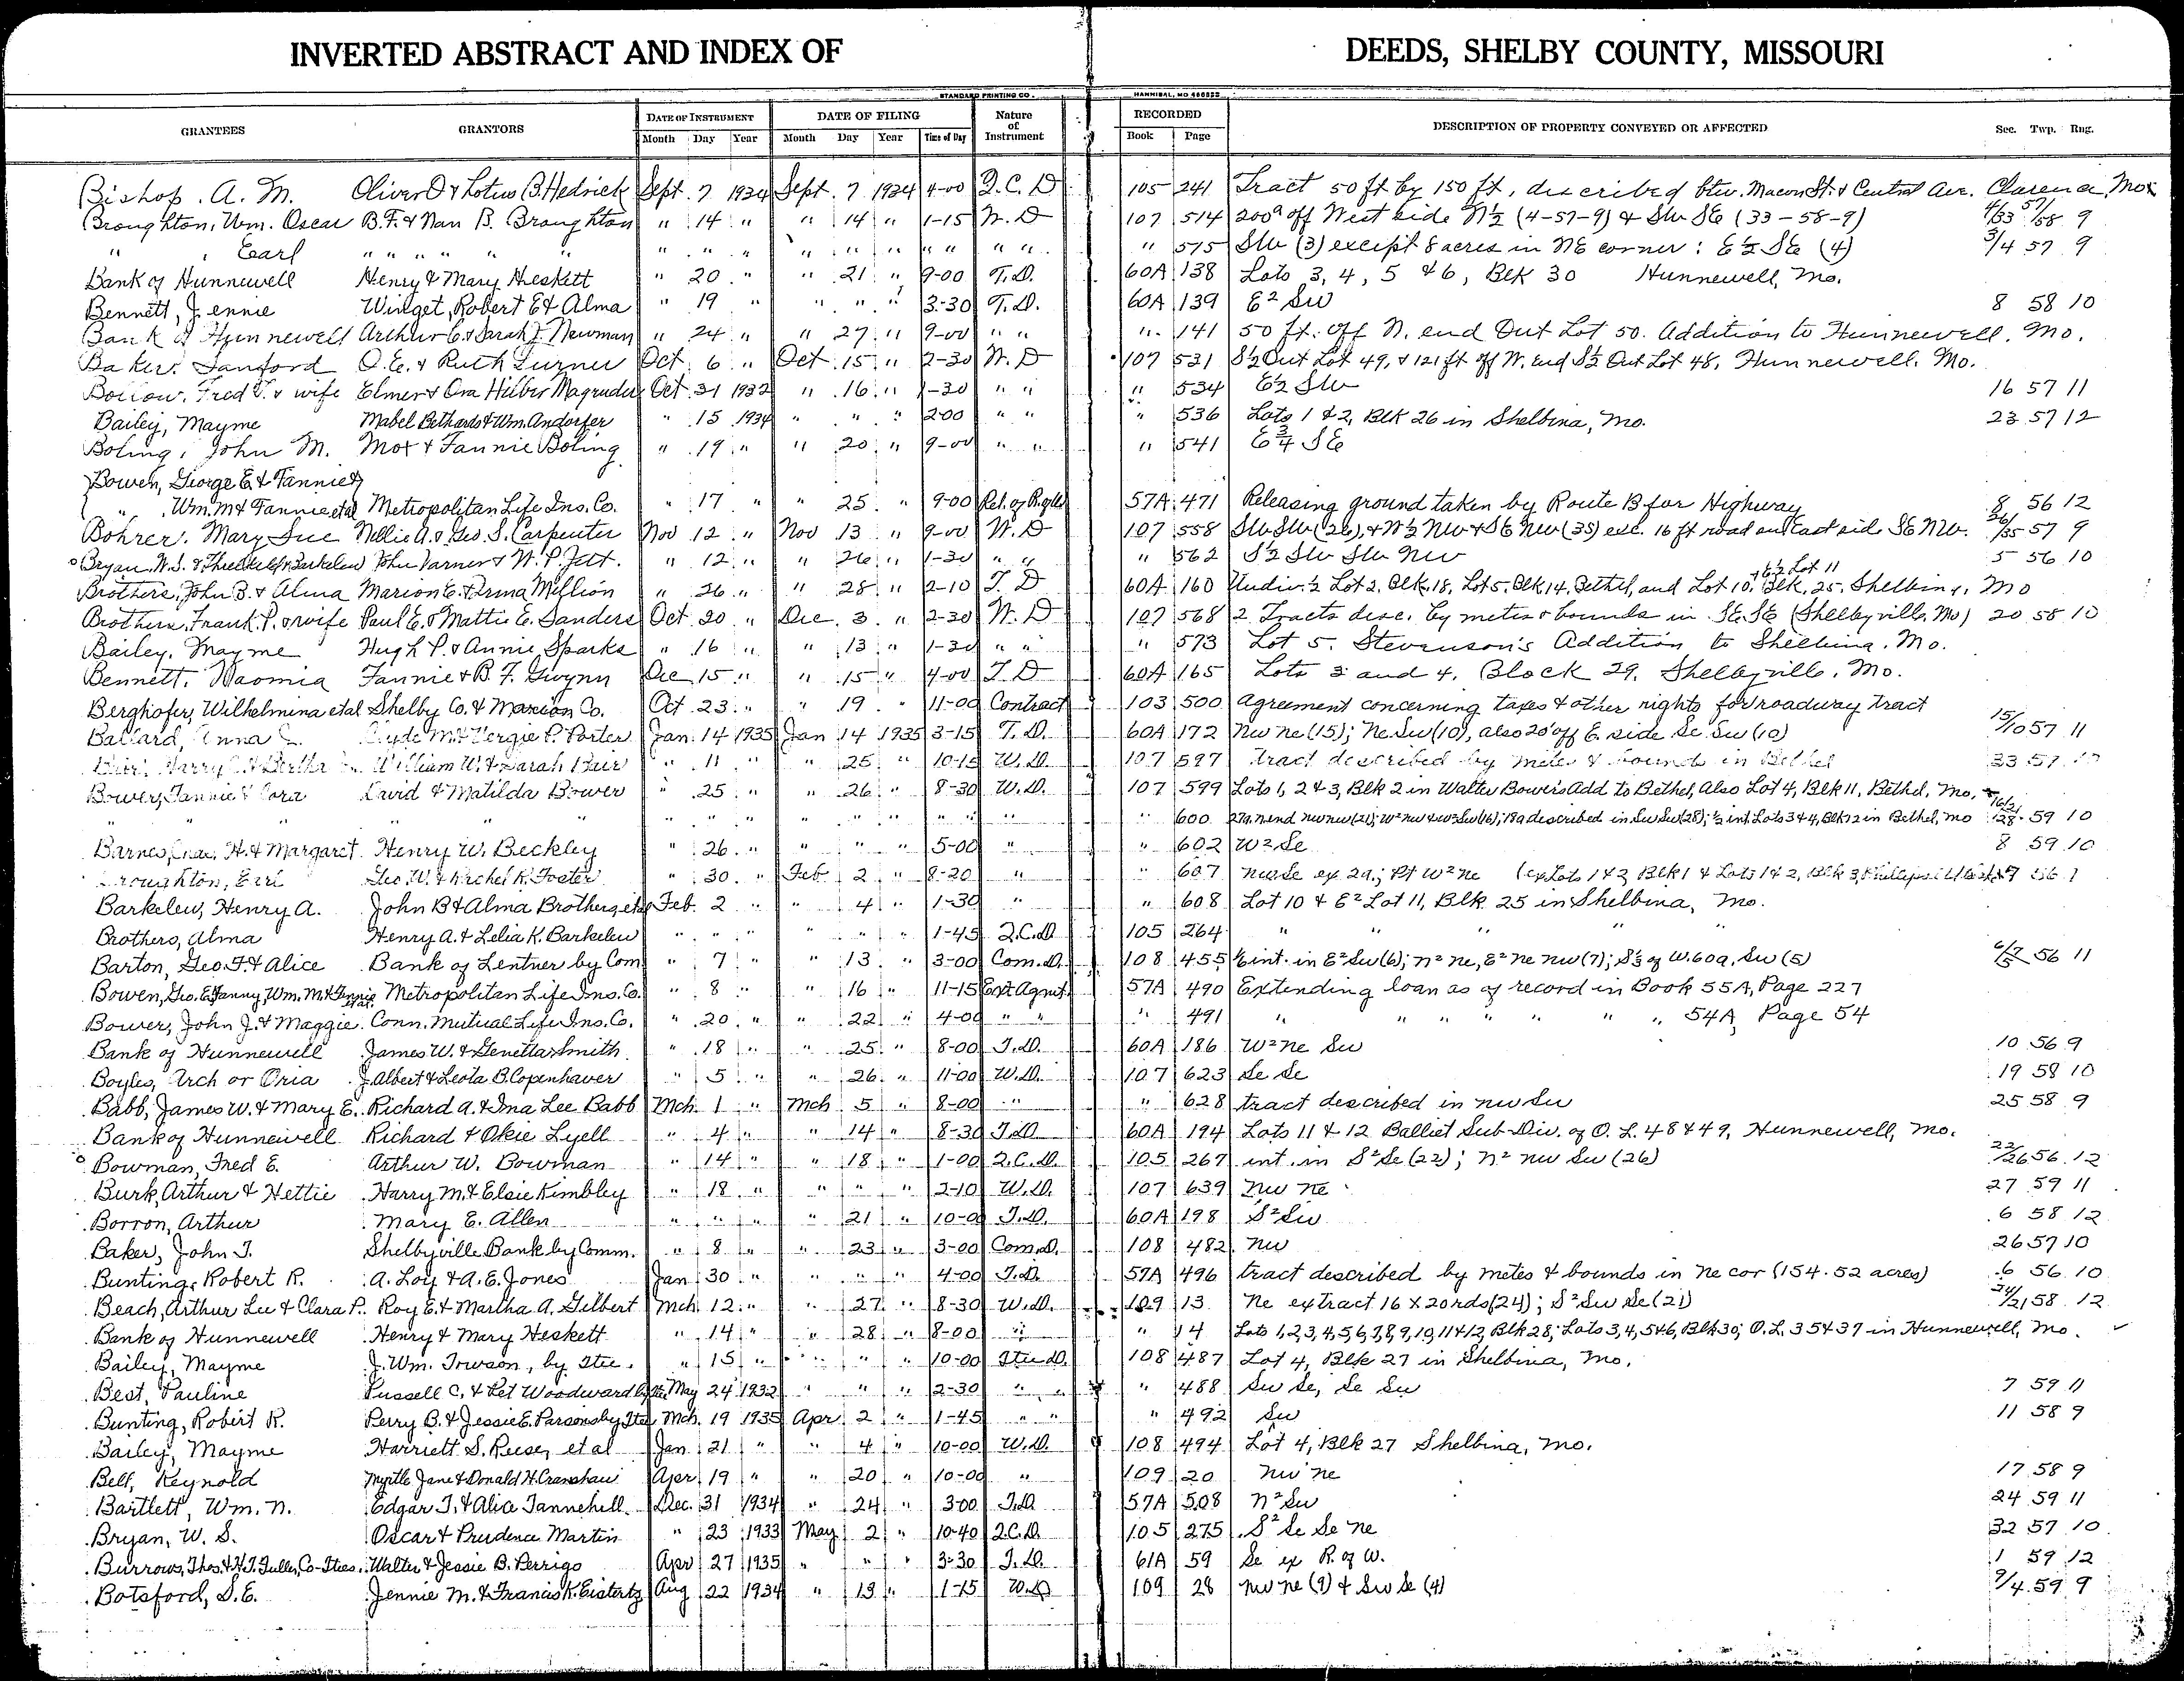 INVERTED ABSTRACT AND INDEX OF DEEDS, SHELBY COUNTY, MISSOURI
STANDARD PRINTING CO. HANNIBAL, MO
GRANTEES GRANTORS DATE OF INSTRUMENT DATE OF FILING Nature of Instrument RECORDED DESCRIPTION OF PROPERTY CONVEYED OR AFFECTED Sec. Twp. Rng.
Month Day Year Month Day Year Time of Day Book Page
Bishop, A. M. Oliver O & Lotus B. Hedrick Sept. 7 1934 Sept. 7 1934 4-00 Q.C.D 105 241 Tract 50 ft by 150 ft, described btw. Macon St. & Central Ave. Clarence, Mo
Broughton, Wm. Oscar B.F. & Nan B. Broughton " 14 " " 14 " 1-15 W.D 107 514 200a off West side N½ (4-57-9) & SW SE (33-58-9) 4/33 57/58 9
" Earl " " " " " " " " " " " " " " " " " 575 SW (3) except 8 acres in NE corner: E½ SE (4) 3/4 57 9
Bank of Hunnewell Henry & Mary Heskett " 20 " " 21 " 9-00 T.D. 60A 138 Lots 3, 4, 5 & 6, Blk 30 Hunnewell, Mo.
Bennett, Jennie Winget, Robert E & Alma " 19 " " " " 3-30 T.D. 60A 139 E² SW 8 58 10
Bank of Hunnewell Arthur C. & Sarah J. Newman " 24 " " 27 " 9-00 " " " 141 50 ft. off N. end Out Lot 50. Addition to Hunnewell, Mo.
Baker, Sanford O.E. & Ruth Turner Oct. 6 " Oct. 15 " 2-30 W.D 107 531 S½ Out Lot 49, & 121 ft off W. end S½ Out Lot 48, Hunnewell, Mo.
Fred T. & wife Elmer & Ora Magruder Oct 31 1932 " 16 " 1-30 " " " 534 E½ SW 16 57 11
Bailey, Mayme Mabel Bethards & Wm. Andorfer " 15 1934 " " " 2-00 " " " 536 Lots 1 & 2, Blk 26 in Shelbina, Mo. 23 57 12
Boling, John M. Mox & Fannie Boling " 19 " " 20 " 9-00 " " " 541 E¾ SE
Bowen, George E. & Fannie
" Wm. M & Fannie etal Metropolitan Life Ins. Co. " 17 " " 25 " 9-00 Rel. of R. of W 57A 471 Releasing ground taken by Route B for Highway 8 56 12
Bohrer, Mary Sue Nellie A. & Geo. S. Carpenter Nov 12 " Nov 13 " 9-00 W.D 107 558 SW SW (26), & W½ NW & SE NW (35) exc. 16 ft road on East side SE NW. 26/35 57 9
Bryan, W.S. & Barkelew John Varner & W. P. " 12 " " 26 " 1-30 " " " 562 S½ SW SW NW 5 56 10
Brothers, John B. & Alma Marion E. & Million " 26 " " 28 " 2-10 T.D 60A 160 Undiv. ½ Lot 2, Blk. 18, Lot 5, Blk 14, Bethel, and Lot 10, & E½ Lot 11 Blk. 25, Shelbina, Mo
Brothers, Frank P. & wife Paul E. & Mattie E. Sanders Oct 20 " Dec. 3 " 2-30 W.D 107 568 2 Tracts desc. by metes & bounds in SE. SE (Shelbyville, Mo) 20 58 10
Bailey, Mayme Hugh P. & Annie Sparks " 16 " " 13 " 1-30 " " " 573 Lot 5, Stevenson's Addition to Shelbina, Mo.
Bennett, Naomia Fannie & B. F. Gwynn Dec 15 " " 15 " 4-00 T.D 60A 165 Lots 3 and 4, Block 29, Shelbyville, Mo.
Berghofer, Wilhelmina etal Shelby Co. & Marion Co. Oct 23 " " 19 " 11-00 Contract 103 500 Agreement concerning taxes & other rights for roadway tract
Ballard, Anna Clyde M. & Vergie P. Porter Jan. 14 1935 Jan 14 1935 3-15 T.D. 60A 172 NW NE (15); NE SW (10), also 20' off E. side SE SW (10) 15/10 57 11
Harry William W. & Sarah " 11 " " 25 " 10-15 W.D. 107 597 tract described by metes & bounds in Bethel 33
Bower, Fannie & Cora David & Matilda Bower " 25 " " 26 " 8-30 W.D. 107 599 Lots 1, 2 & 3, Blk 2 in Walter Bower's Add to Bethel, Also Lot 4, Blk 11, Bethel, Mo.
" " " " " " " " " " " " " " 600 27a. N end NW NW (21); W² NW & W² SW (16); 18a described in SW SW (28); ½ int. Lots 3 & 4, Blk 12 in Bethel, Mo 16/21/28 59 10
Barnes, H. & Margaret Henry W. Beckley " 26 " " " " 5-00 " " 602 W² SE 8 59 10
Broughton, Earl Geo. W. & Rachel K. Foster " 30 " Feb 2 " 8-20 " " 607 NW SE ex 2a; Pt W² NE (ex Lots 1 & 2, Blk 1 & Lots 1 & 2, Blk 3,
Barkelew, Henry A. John B & Alma Brothers, etal Feb. 2 " " 4 " 1-30 " " 608 Lot 10 & E² Lot 11, Blk 25 in Shelbina, Mo.
Brothers, Alma Henry A. & Lelia K. Barkelew " " " " " " 1-45 Q.C.D. 105 264 " " " " "
Barton, Geo. F. & Alice Bank of Lentner by Com " 7 " " 13 " 3-00 Com. D. 108 455 int. in E² SW (6); N² NE, E² NE NW (7); S⅓ of W. 60a, SW (5) 6/7/5 56 11
Bowen, Geo. E. & Fanny, Wm. M. & Fannie etal. Metropolitan Life Ins. Co. " 8 " " 16 " 11-15 Ext Agmt. 57A 490 Extending loan as of record in Book 55A, Page 227
Bower, John J. & Maggie Conn. Mutual Life Ins. Co. " 20 " " 22 " 4-00 " " " 491 " " " " " " " 54A, Page 54
Bank of Hunnewell James W. & Genetta Smith " 18 " " 25 " 8-00 T.D. 60A 186 W² NE SW 10 56 9
Boyles, Arch or Oria J. Albert & Leota B. Copenhaver " 5 " " 26 " 11-00 W.D. 107 623 SE SE 19 58 10
Babb, James W. & Mary E. Richard A. & Ina Lee Babb Mch. 1 " Mch 5 " 8-00 " " 628 tract described in NW SW 25 58 9
Bank of Hunnewell Richard & Okie Lyell " 4 " " 14 " 8-30 T.D. 60A 194 Lots 11 & 12 Balliet Sub-Div. of O. L. 48 & 49, Hunnewell, Mo.
Bowman, Fred E. Arthur W. Bowman " 14 " " 18 " 1-00 Q.C.D. 105 267 int. in S² SE (22); N² NW SW (26) 22/26 56 12
Burk, Arthur & Hettie Harry M. & Elsie Kimbley " 18 " " " " 2-10 W.D. 107 639 NW NE 27 59 11
Borron, Arthur Mary E. Allen " " " " 21 " 10-00 T.D. 60A 198 S² SW 6 58 12
Baker, John T. Shelbyville Bank by Comm. " 8 " " 23 " 3-00 Com. D. 108 482 NW 26 57 10
Bunting, Robert R. A. Loy & A. E. Jones Jan 30 " " " " 4-00 T.D. 57A 496 tract described by metes & bounds in NE cor (154.52 acres) 6 56 10
Beach, Arthur Lee & Clara P. Roy E. & Martha A. Gilbert Mch. 12 " " 27 " 8-30 W.D. 109 13 NE ex tract 16 X 20 rds (24); S² SW SE (21) 24/21 58 12
Bank of Hunnewell Henry & Mary Heskett " 14 " " 28 " 8-00 " " 14 Lots 1,2,3,4,5,6,7,8,9,10,11 & 12, Blk 28; Lots 3,4,5 & 6, Blk 30; O.L. 35 & 37 in Hunnewell, Mo.
Bailey, Mayme J. Wm. Irwson, by Stee. " 15 " " " " 10-00 Stee D. 108 487 Lot 4, Blk 27 in Shelbina, Mo.
Best, Pauline Russell C. & Pet Woodward by Stee May 24 1932 " " " 2-30 " " " 488 SW SE, SE SW 7 59 11
Bunting, Robert R. Perry B. & Jessie E. Parsons by Stee Mch. 19 1935 Apr 2 " 1-45 " " " 492 SW 11 58 9
Bailey, Mayme Harriett S. Reese, et al Jan. 21 " " 4 " 10-00 W.D. 108 494 Lot 4, Blk 27 Shelbina, Mo.
Belt, Reynold Myrtle Jane & Donald H. Crenshaw Apr 19 " " 20 " 10-00 " 109 20 NW NE 17 58 9
Bartlett, Wm. N. Edgar T. & Alice Tannehill Dec. 31 1934 " 24 " 3-00 T.D. 57A 508 N² SW 24 59 11
Bryan, W. S. Oscar & Prudence Martin " 23 1933 May 2 " 10-40 Q.C.D. 105 275 S² SE SE NE 32 57 10
Burrows, Thos. & H. T. Fuller, Co-Stees. Walter & Jessie B. Perrigo Apr 27 1935 " " " 3-30 T.D. 61A 59 SE ex R. of W. 1 59 12
Botsford, S. E. Jennie M. & Francis K. Eistertz Aug 22 1934 " 13 " 1-15 W.D 109 28 NW NE (9) & SW SE (4) 9/4 59 9